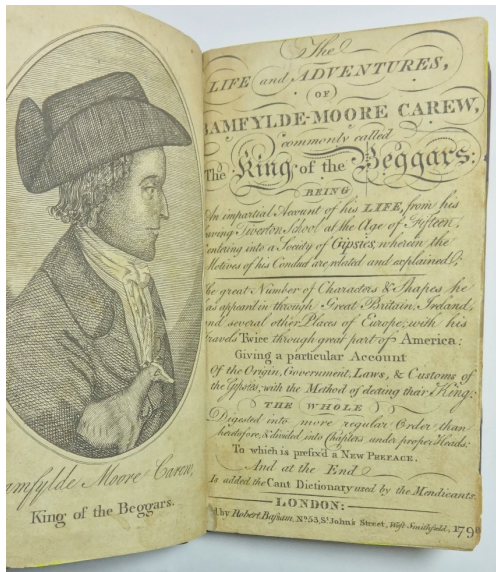 amfylde Moore Carew,
King of the Beggars.
The
LIFE and ADVENTURES,
OF
BAMFYLDE-MOORE CAREW,
commonly called
The King of the Beggars:
BEING
An impartial Account of his LIFE, from his
aving Tiverton School at the Age of Fifteen,
entering into a Society of Gipsies, wherein the
Motives of his Conduct are related and explained;
he great Number of Characters & Shapes he
as appear'd in through Great Britain, Ireland,
nd several other Places of Europe; with his
ravels Twice through great part of America:
Giving a particular Account
Of the Origin, Government, Laws, & Customs of
the Gipsies, with the Method of electing their King:
THE WHOLE
Digested into more regular Order than
heretofore, & divided into Chapters under proper Heads:
To which is prefixd a NEW PREFACE.
And at the End
Is added the Cant Dictionary used by the Mendicants.
LONDON:
d by Robert Bassam, No. 53, St. John's Street, West Smithfield, 179